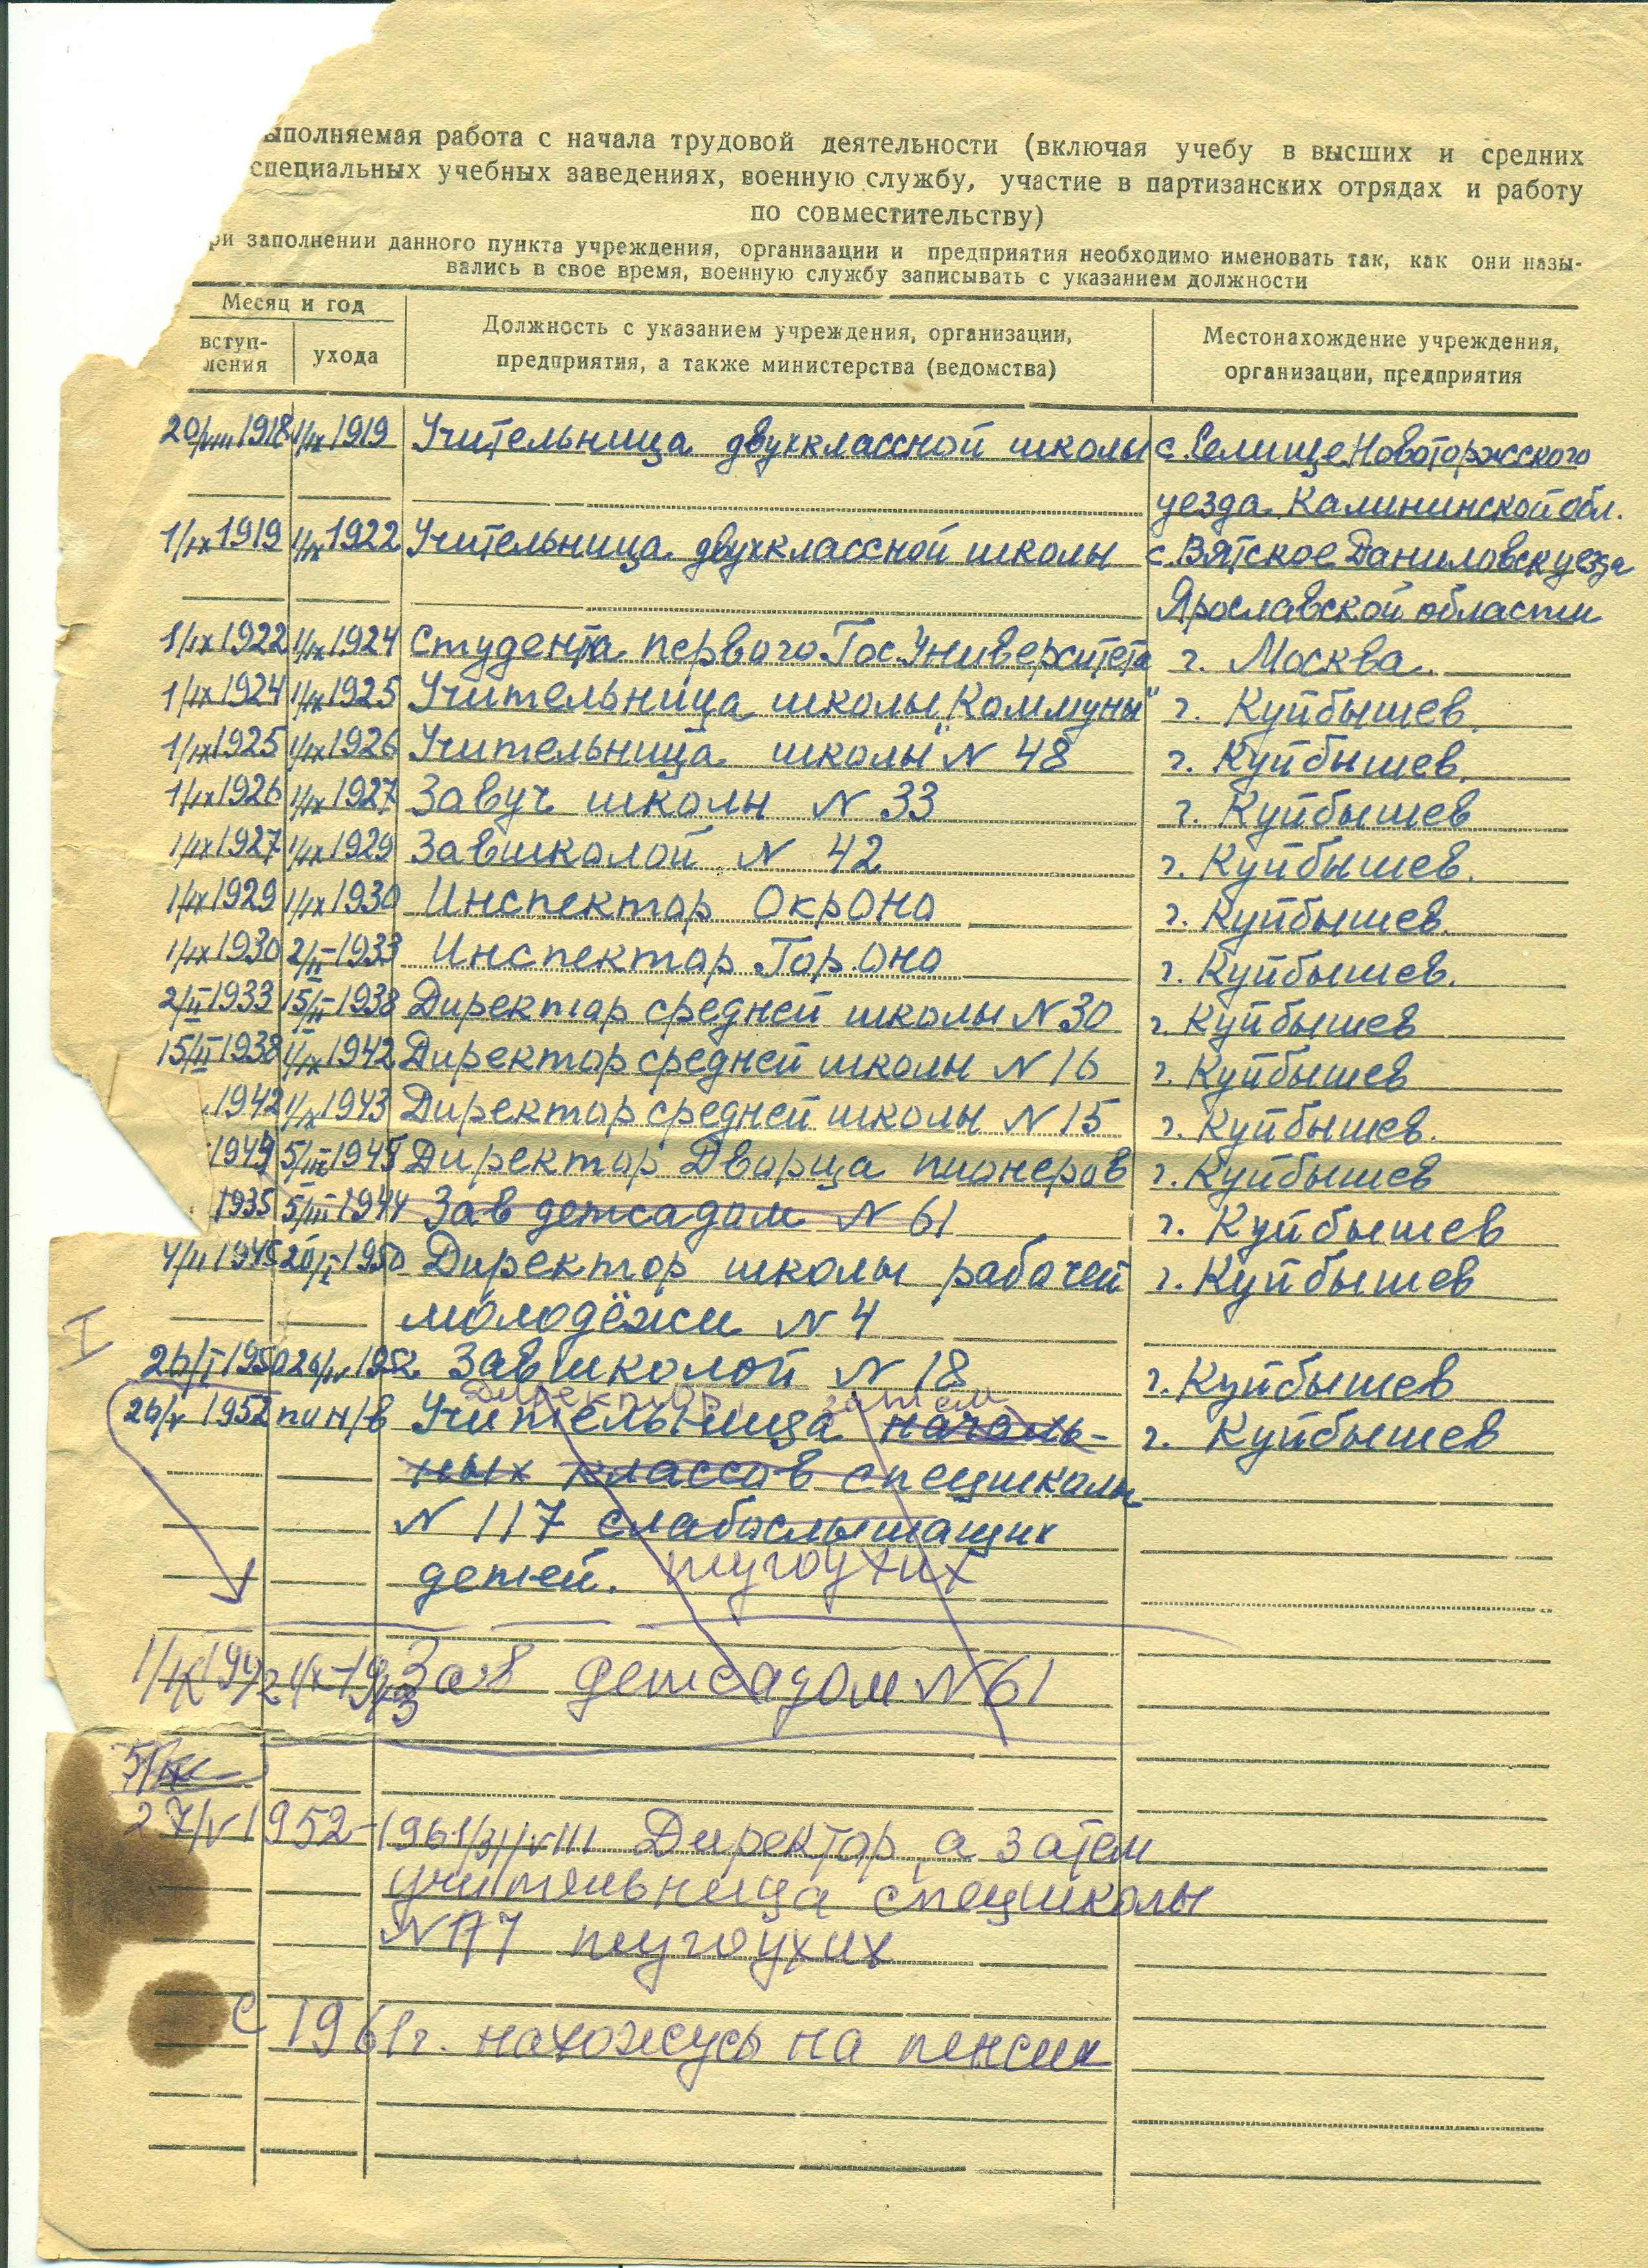 ыполняемая работа с начала трудовой деятельности (включая учебу в высших и средних
специальных учебных заведениях, военную службу, участие в партизанских отрядах и работу
по совместительству)
ри заполнении данного пункта учреждения, организации и предприятия необходимо именовать так, как они назы-
вались в свое время, военную службу записывать с указанием должности
Месяц и год
вступ-
ления
ухода
Должность с указанием учреждения, организации,
предприятия, а также министерства (ведомства)
Местонахождение учреждения,
организации, предприятия
20/VIII 1918 1/IX 1919 Учительница двухклассной школы с. Селище Новоторжского
уезда Калининской обл.
1/IX 1919 1/IX 1922 Учительница двухклассной школы с. Вятское Даниловск уезда
Ярославской области
1/IX 1922 1/IX 1924 Студента первого Гос. Университета г. Москва.
1/IX 1924 1/IX 1925 Учительница школы „Коммуны" г. Куйбышев.
1/IX 1925 1/IX 1926 Учительница школы N 48 г. Куйбышев.
1/IX 1926 1/IX 1927 Завуч школы N 33 г. Куйбышев
1/IX 1927 1/IX 1929 Завшколой N 42 г. Куйбышев.
1/IX 1929 1/IX 1930 Инспектор ОкрОно г. Куйбышев.
1/IX 1930 2/II-1933 Инспектор Гор.Оно г. Куйбышев.
2/II 1933 15/II-1938 Директор средней школы N 30 г. Куйбышев
15/II 1938 1/IX 1942 Директор средней школы N 16 г. Куйбышев
1942 1/X 1943 Директор средней школы N 15 г. Куйбышев.
5/III 1945 Директор Дворца пионеров г. Куйбышев
1935 5/III 1944 Зав детсадом N 61 г. Куйбышев
4/II 1945 20/I-1950 Директор школы рабочей г. Куйбышев
молодёжи N 4
I
26/I 1950 26/V 1952 Завшколой N 18 г. Куйбышев
Директор, затем
26/V 1952 по н/в Учительница началь- г. Куйбышев
ных классов спецшколы
N 117 слабослышащих
детей. тугоухих
1/IX 1942 1/X-1943 Зав детсадом N 61
27/V 1952-1961/31/VIII Директор, а затем
учительница спецшколы
N 117 тугоухих
С 1961 г. нахожусь на пенсии